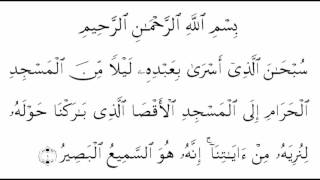 بِسْمِ ٱللَّهِ ٱلرَّحْمَـٰنِ ٱلرَّحِيمِ
سُبْحَـٰنَ ٱلَّذِىٓ أَسْرَىٰ بِعَبْدِهِۦ لَيْلًا مِّنَ ٱلْمَسْجِدِ
ٱلْحَرَامِ إِلَى ٱلْمَسْجِدِ ٱلْأَقْصَا ٱلَّذِى بَـٰرَكْنَا حَوْلَهُۥ
لِنُرِيَهُۥ مِنْ ءَايَـٰتِنَآ ۚ إِنَّهُۥ هُوَ ٱلسَّمِيعُ ٱلْبَصِيرُ ۝١